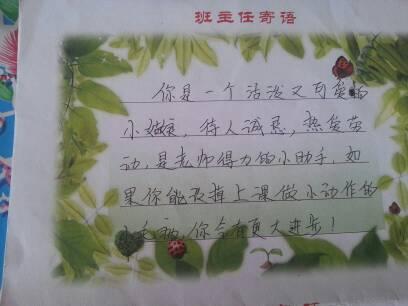 班主任寄语
你是一个活泼又可爱的
小姑娘，待人诚恳，热爱劳
动，是老师得力的小助手，如
果你能改掉上课做小动作的
小毛病，你会有更大进步！